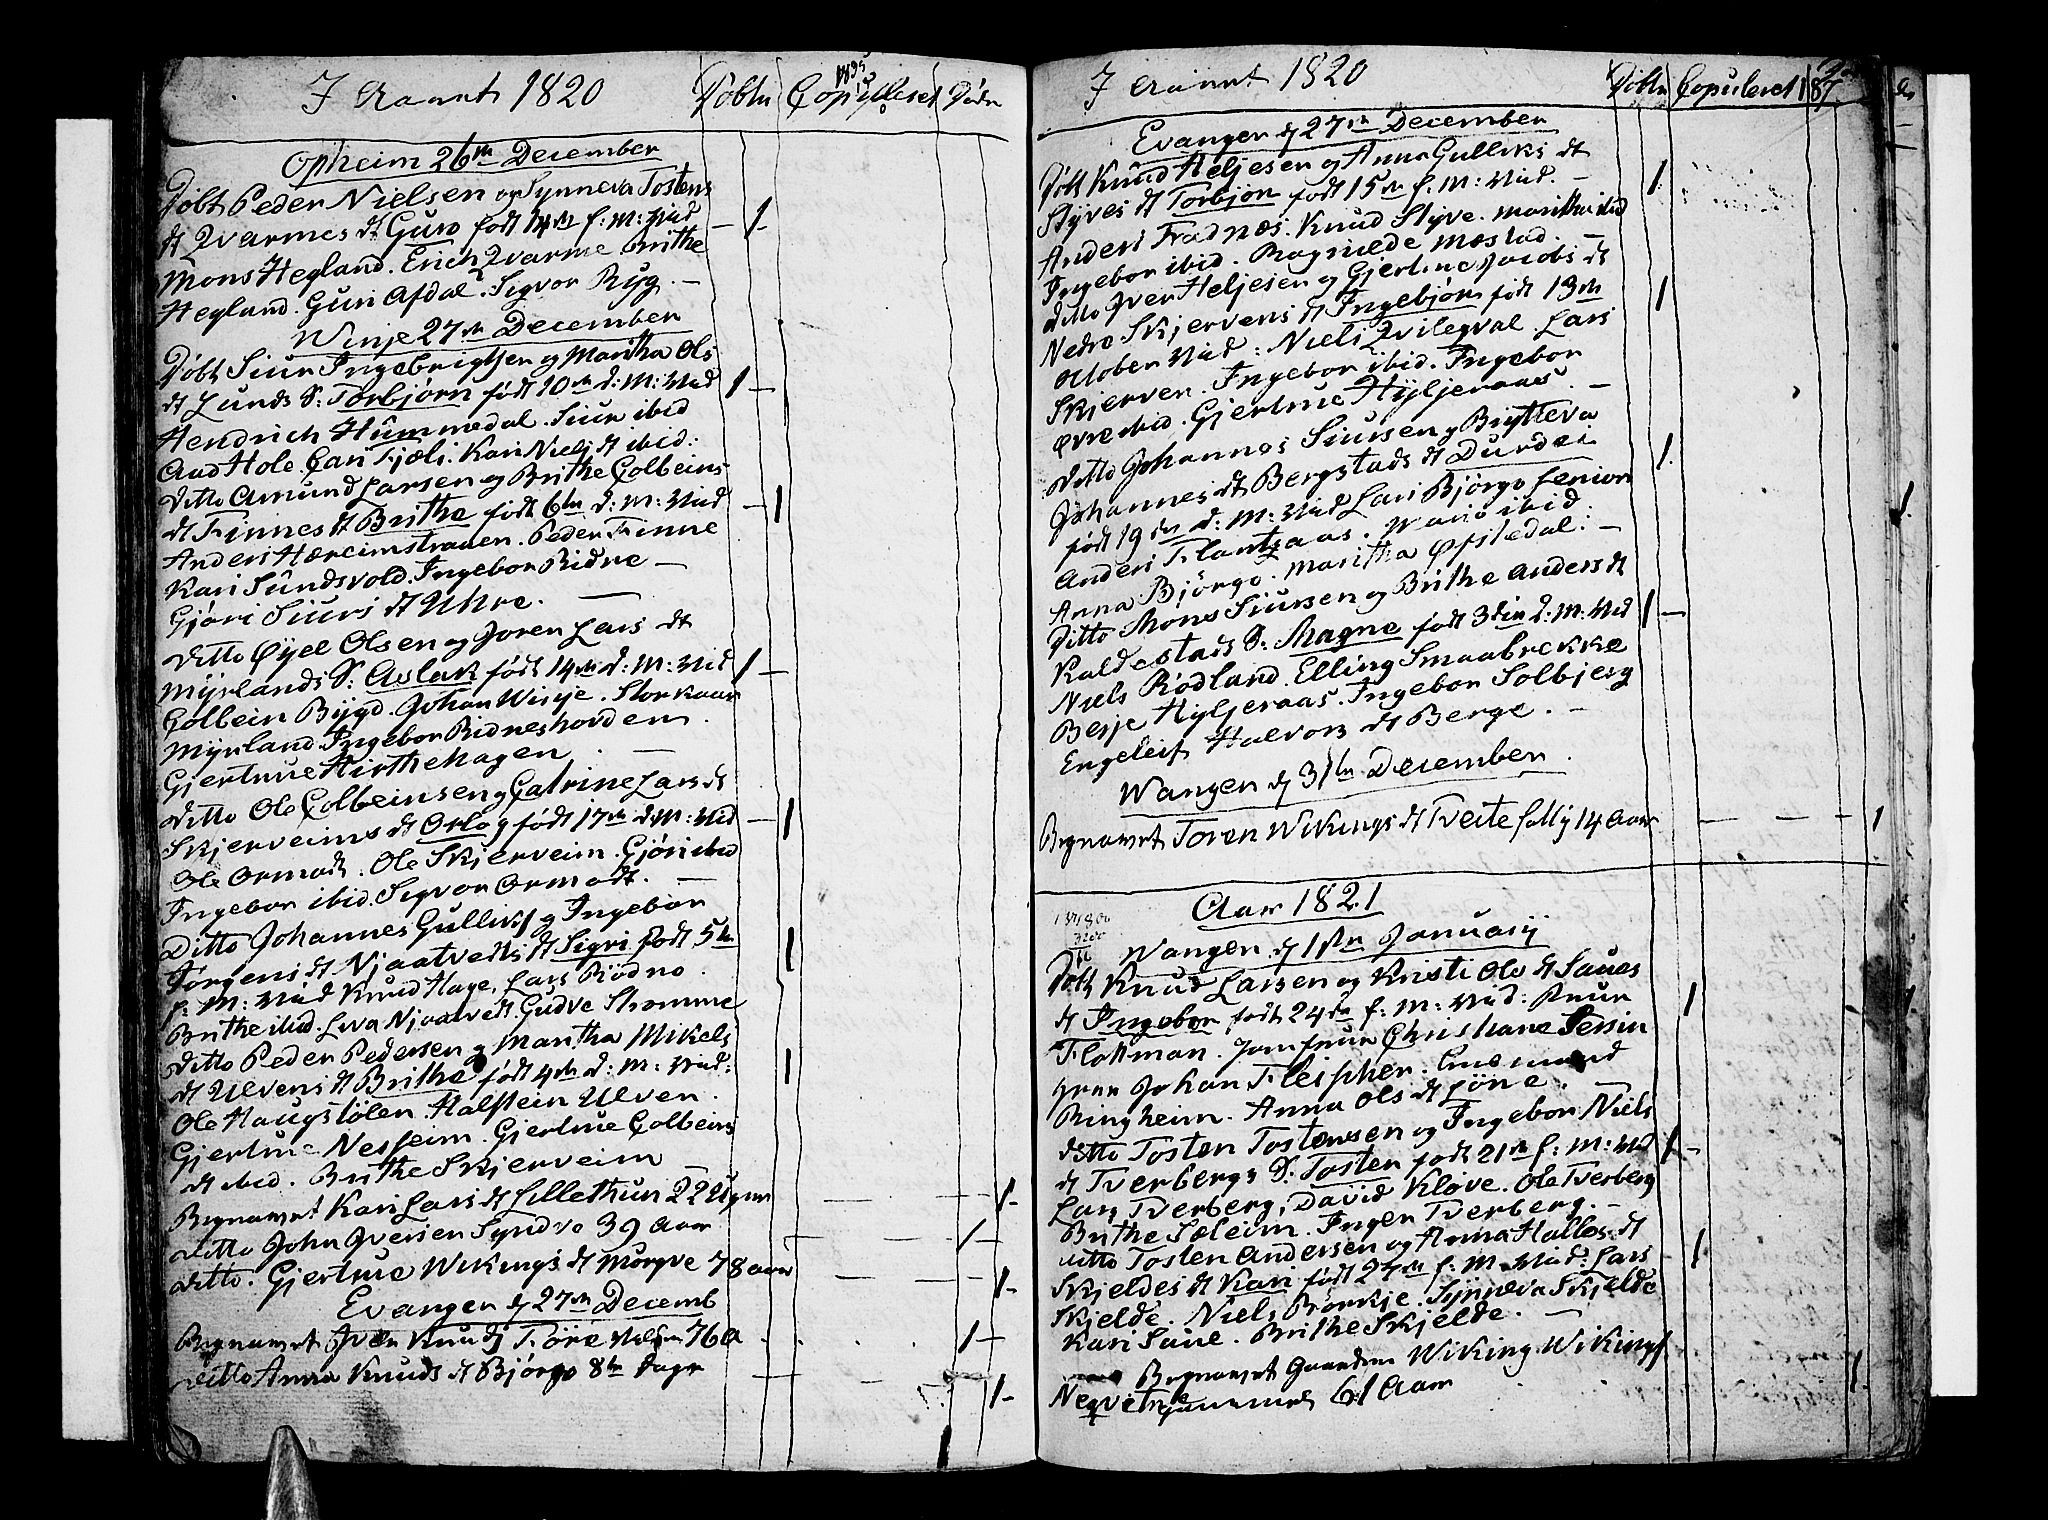 I Aaret 1820 Döbte Copulleret Döde
1895
Opheim 26de December
Döbt Peder Nielsen og Synneva Tostens
dt Qvarmes dt Guro født 14de f: M: Vid
Mons Hegland. Erich Qvarme Brithe
Hegland. Guri Afdal. Sigvor Ryg. —
Winje 27de December
Döbt Siur Ingebrigtsen og Maritha Ols
dt Lunds S: Torbjørn født 10de d: M: Vid
Hendrich Hümmedal. Siur ibid
Aad Hole. Cari Fjæli. Kari Niels dt ibid:
Ditto Amund Larsen og Brithe Colbeins
dt Finnes dt Brithe født 6te d: M: Vid
Anders Hæreimstræen. Peder Finne
Kari Sündsvold. Ingebor Ridne —
Gjøri Siurs dt Uhre. —
Ditto Øyel Olsen og Joren Lars dt
Myrlands S: Aslak født 14de d: M: Vid
Colbein Bÿgd. Johan Winje. Storkaar
Mÿrland. Ingebor Ridneshovden.
Gjertrue Hirthehagen. —
Ditto Ole Colbeinsen og Catrine Lars dt
Skjerveims dt Orlog født 17de d: M: Vid
Ole Ormodt. Ole Skjerveim. Gjøri ibid
Ingebor ibid. Sigvor Ormodt. —
Ditto Johannes Gulliks og Ingebor
Jørgens dt Njaatvedts dt Sigri født 5te
f: M: Vid Knud Hage, Lars Rödno.
Brithe ibid. Njaatvedt. Gudve Skromme
Ditto Peder Pedersen og Maritha Mikels
dt Ulvens dt Brithe født 4de d: M: Vid:
Ole Haugstölen. Halstein Ulven.
Gjertrue Nesheim. Gjertrue Colbeins
dt ibid. Brithe Skjerveim
Begravet Kari Lars dt Lillethun 22 Uger
Ditto John Iversen Syndve 39 Aar
Ditto. Gjertrue Wikings dt Mörqve 78 aar
Evanger d 27de Decemb
Begravet Iver Knuds Före 76 A
Ditto Anna Knuds dt Björgo 8te Dage
I Aaret 1820 Döbte Copuleret
187
Evanger d 27de December
Döbt Knud Heljesen og Anna Gulliks dt
Styves dt Torbjør født 15de f: M: Vid. —
Anders Fadnæs. Knud Styve. Maritha ibid
Ingebor ibid. Ragnilde Mæstad. —
Ditto Iver Heljesen og Gjertrue Jacobs dt
Nedre Skjervens dt Ingebjør født 13de
October Vid: Niels Qvilegval. Lars
Skjerven. Ingebor ibid. Ingebor
øvre ibid. Gjertrue Hÿljeraas. —
Ditto Johannes Siursen og Brytteva
Johannes dt Bergstads dt Durdei
født 19de d: M: Vid Lars Björgo senior
Anders Flantzaas. ibid.
Anna Björgo. Maritha Øfstedal: —
Ditto Mons Siursen og Brithe Anders dt
Kaldestads S: Magne født 3die d: M: Vid
Niels Rödland. Elling Smaabrekke
Besje Hÿljeraas. Ingebor Solbjerg
Engeleif Halvors dt Berge. —
Wangen d 31te December
Begravet Toren Wikings dt Tveite 14 Aar
Aar 1821
Wangen d 1ste Januarij
Döbt Knud Larsen og Kristi Ols dt Saues
dt Ingebor født 24de f: M: Vid: Knut
Flottman. Jomfrue Christiane Sersin
Johan Fleischer.
Ringheim. Anna Ols dt Löne. —
Ditto Tosten Tostensen og Ingebor Niels
dt Tverbergs S. Tosten født 21de f: M: Vid
Lars Tverberg, David Klöve. Ole Tverberg
Brithe Sæleim. Inger Tverberg. —
Ditto Tosten Andersen og Anna Halles dt
Skjeldes dt Kari født 27de f: M: Vid: Lars
Skjelde. Niels Börkje. Synneva Skjelde
Kari Saue. Brithe Skjelde. —
Begravet Wiking Wikings
61 Aar